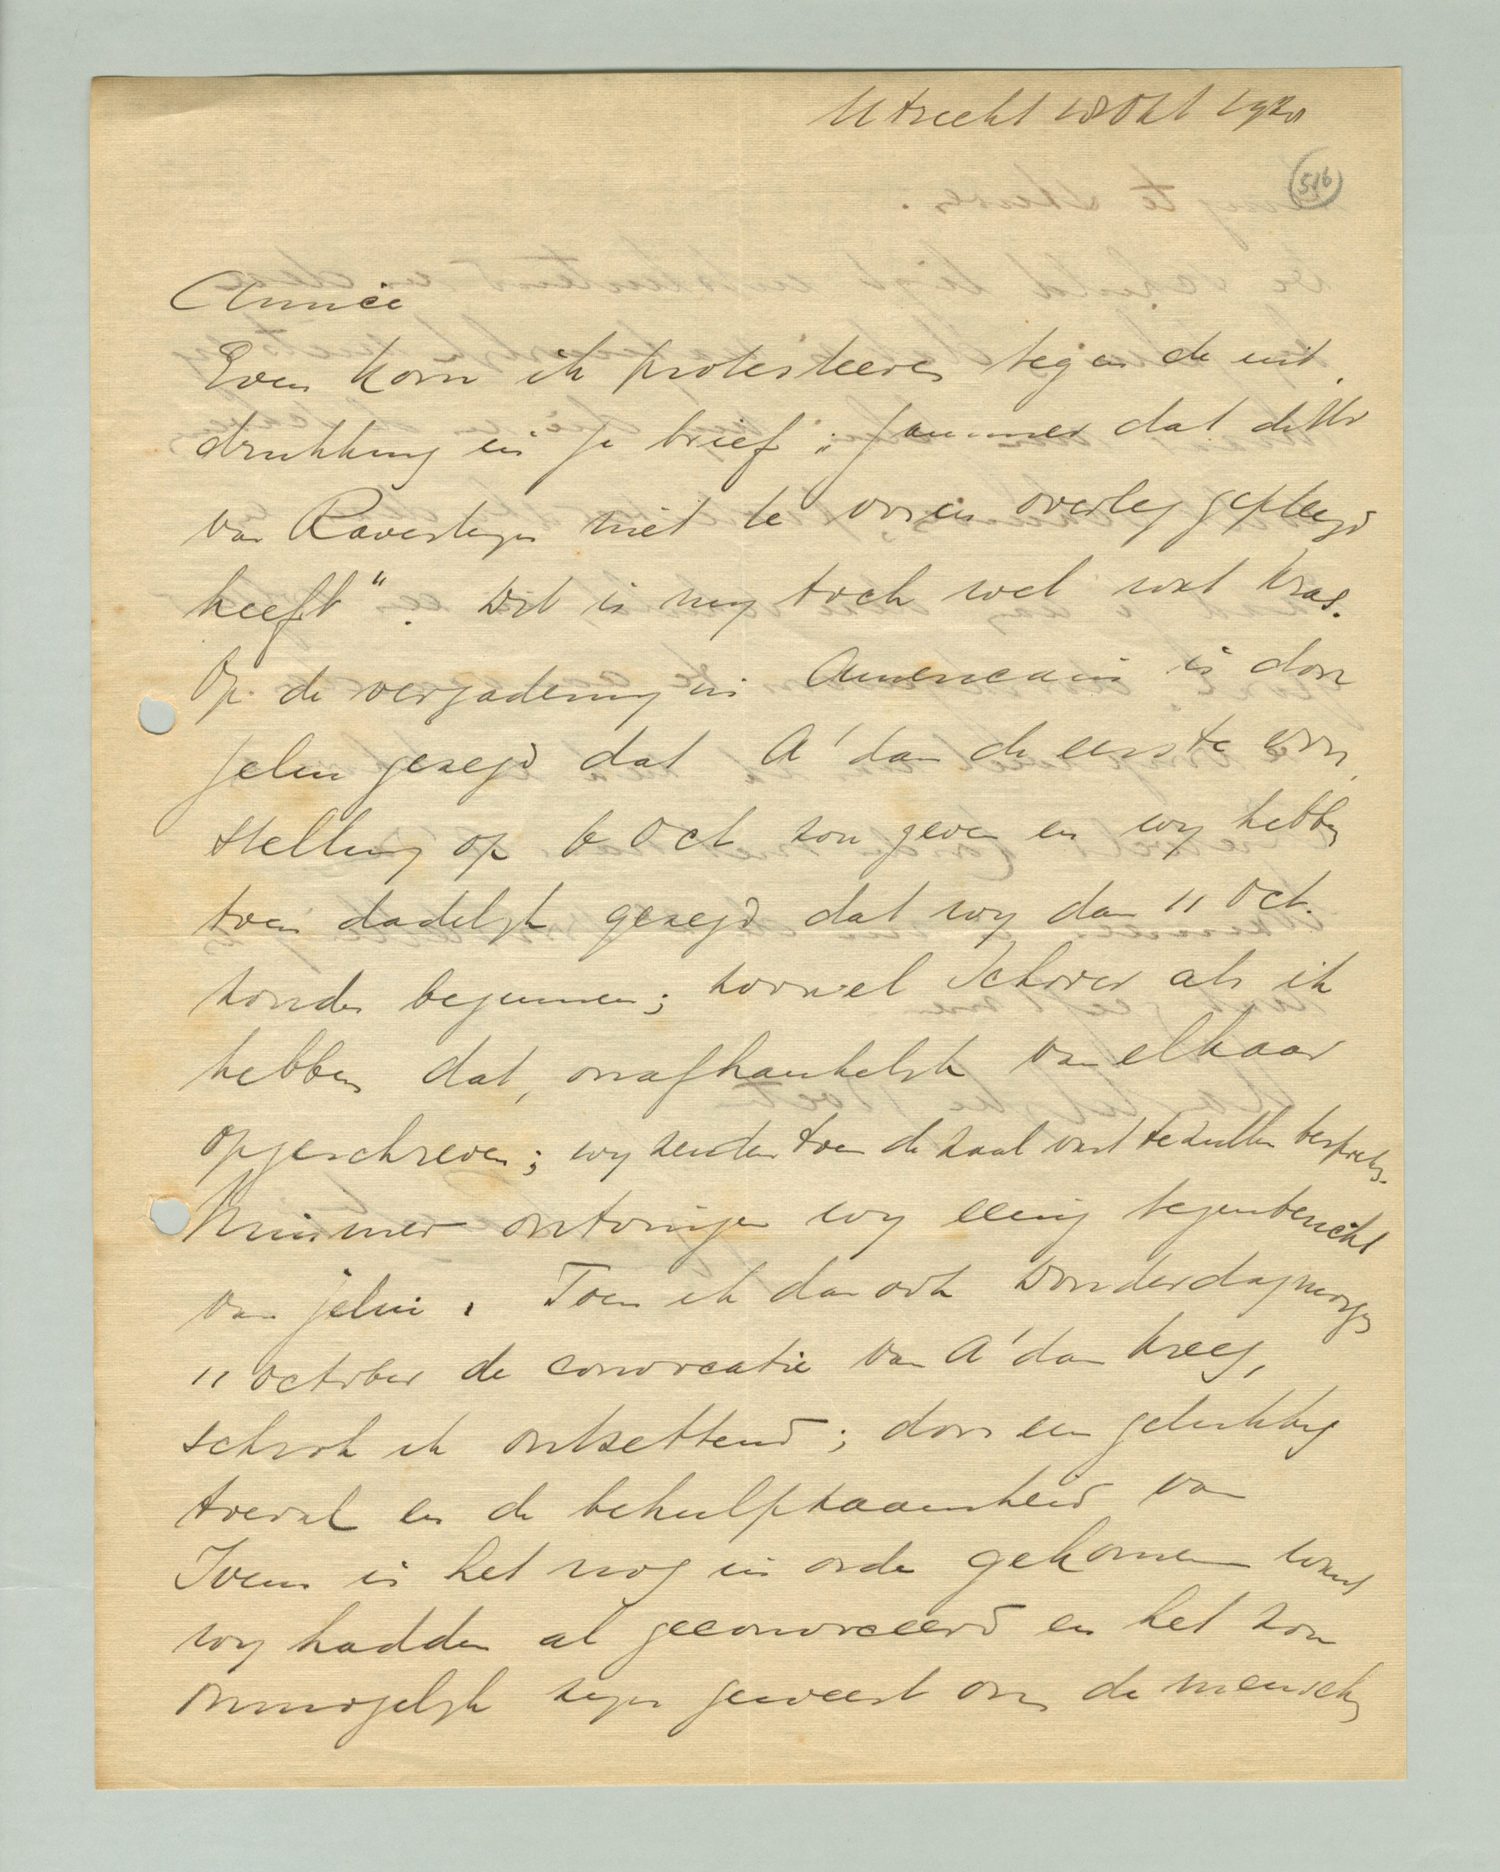 Utrecht 18 Okt 1928
516
Amice
Even kom ik protesteeren tegen de uit
drukking in je brief: "jammer dat de Hr
van Ravesteyn niet te voren overleg gepleegd
heeft". Dit is my toch wel wat kras.
Op de vergadering in Americain is door
jelui gezegd dat A'dam de eerste voor
stelling op 6 Oct zou geven en wy hebben
toen dadelyk gezegd dat wy dan 11 Oct.
zouden beginnen; zoowel Schover als ik
hebben dat, onafhankelyk van elkaar
opgeschreven; wy zeiden toen de zaal vast te zullen bespreken.
Nimmer ontvingen wy eenig tegenbericht
van jelui. Toen ik dan ook Donderdagmorgen
11 October de convocatie van A'dam kreeg,
schrok ik ontzettend; door een gelukkig
toeval en de behulpzaamheid van
Ivens is het nog in orde gekomen want
wy hadden al geconvoceerd en het zou
onmogelyk zyn geweest om de menschen